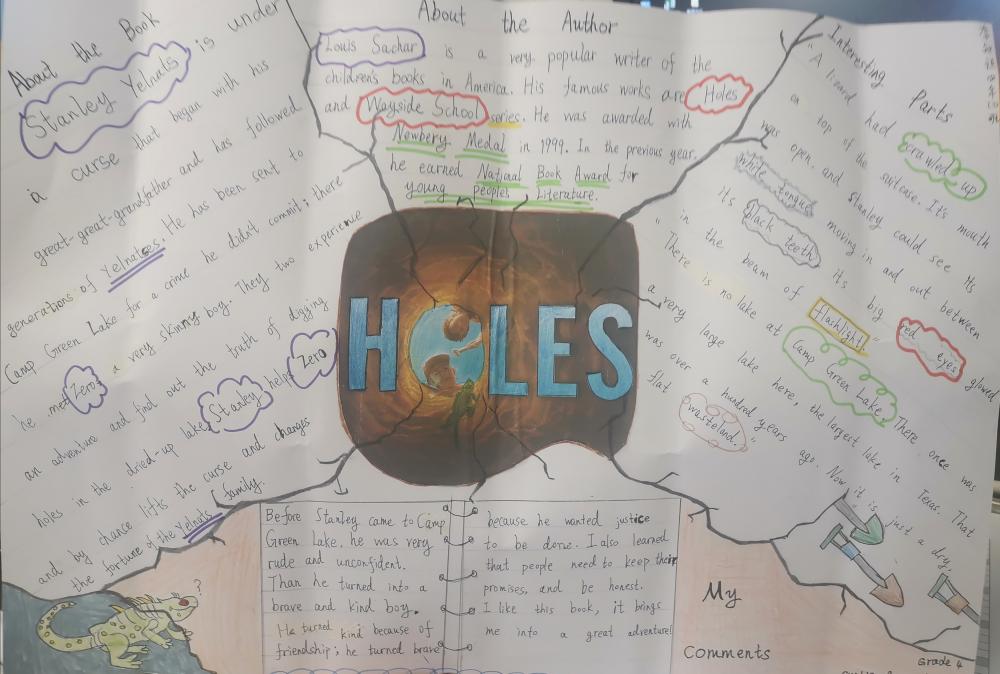 About the Book
Stanley Yelnats is under
a curse that began with his
great-great-grandfather and has followed
generations of Yelnatses. He has been sent to
Camp Green Lake for a crime he didnt commit; there
he met Zero a very skinny boy. They two experience
an adventure and find out the truth of digging
holes in the dried-up lake, Stanley helps Zero
and by chance lifts the curse and changes
the fortune of the Yelnats family.
About the Author
Louis Sachar is a very popular writer of the
children's books in America. His famous works are Holes
and Wayside School series. He was awarded with
Newbery Medal in 1999. In the previous year.
he earned National Book Award for
young peoples Literature.
Interesting Parts
"A lizard had crawled up
on top of the suitcase. It's mouth
was open, and stanley could see Its
white tongue moving in and out between
Its black teeth its big red eyes glowed
in the beam of flashlight"
"There is no lake at Camp Green Lake. There once was
a very large lake here, the largest lake in Texas. That
was over a hundred years ago. Now it is just a dry,
flat wasteland."
HOLES
Before Stanley came to Camp
Green Lake, he was very
rude and unconfident.
Than he turned into a
brave and kind boy.
He turned kind because of
friendship; he turned brave
because he wanted justice
to be done. I also learned
that people need to keep their
promises, and be honest.
I like this book, it brings
me into a great adventure!
My
Comments
?
Grade 4